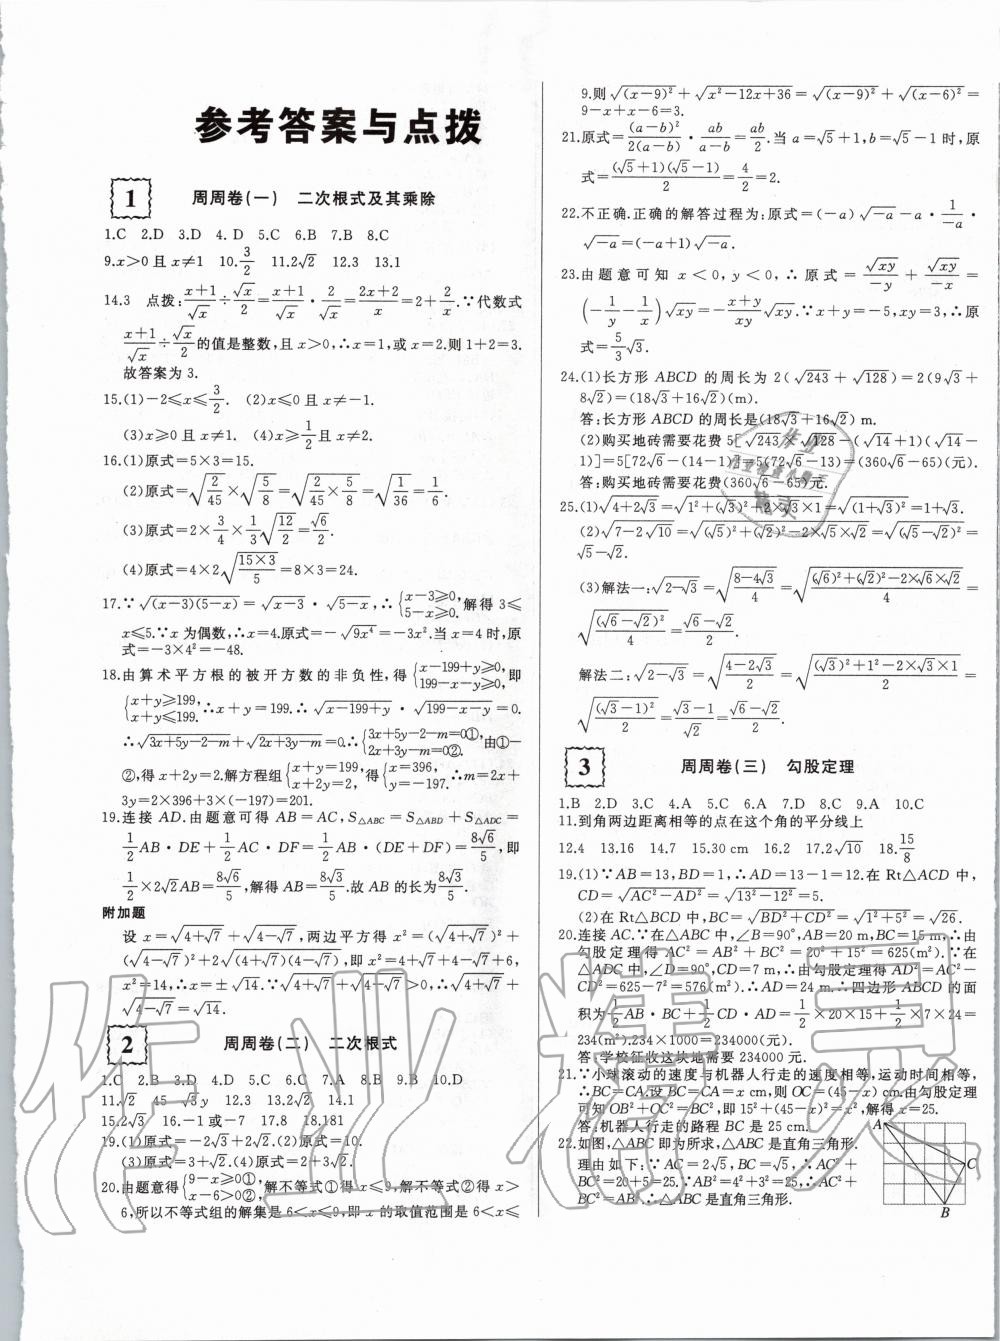 参考答案与点拨
1 周周卷(一) 二次根式及其乘除
1.C 2.D 3.D 4.D 5.C 6.B 7.B 8.C
9.x>0 且 x≠1 10.3/2 11.2√2 12.3 13.1
14.3 点拨:(x+1)/√x÷√x/2=(x+1)/√x·2/√x=(2x+2)/x=2+2/x.∵代数式
(x+1)/√x÷√x/2的值是整数,且 x>0,∴x=1,或 x=2.则 1+2=3.
故答案为 3.
15.(1)-2≤x≤3/2. (2)x≤0 且 x≠-1.
(3)x≥0 且 x≠1. (4)x≥1/2且 x≠2.
16.(1)原式=5×3=15.
(2)原式=√(2/45)×√(5/8)=√(2/45×5/8)=√(1/36)=1/6.
(3)原式=2×3/4×1/3√(12/2)=√6/2.
(4)原式=4×2√(15×3/5)=8×3=24.
17.∵√((x-3)(5-x))=√(x-3)·√(5-x),∴{x-3≥0, 5-x≥0.解得 3≤
x≤5.∵x 为偶数,∴x=4.原式=-√(9x⁴)=-3x².当 x=4 时,原
式=-3×4²=-48.
18.由算术平方根的被开方数的非负性,得{x-199+y≥0, 199-x-y≥0,即
{x+y≥199, x+y≤199.∴x+y=199.∴√(x-199+y)·√(199-x-y)=0.
∴√(3x+5y-2-m)+√(2x+3y-m)=0.∴{3x+5y-2-m=0①, 2x+3y-m=0②.由①-
②,得 x+2y=2.解方程组{x+y=199, x+2y=2,得{x=396, y=-197.∴m=2x+
3y=2×396+3×(-197)=201.
19.连接 AD.由题意可得 AB=AC,S△ABC=S△ABD+S△ADC=
1/2AB·DE+1/2AC·DF=1/2AB·(DE+DF)=8√6/5,即
1/2×2√2AB=8√6/5,解得 AB=8√3/5.故 AB 的长为8√3/5.
附加题
设 x=√(4+√7)+√(4-√7),两边平方得 x²=(√(4+√7))²+
(√(4-√7))²+2√((4+√7)(4-√7)),即 x²=4+√7+4-√7+6,
x²=14,∴x=±√14.∵√(4+√7)+√(4-√7)>0,∴√(4+√7)+
√(4-√7)=√14.
2 周周卷(二) 二次根式
1.C 2.B 3.D 4.D 5.C 6.C 7.A 8.B 9.B 10.D
11.√2 45 -√3y 12.3 13.2√2 14.1
15.2√3 16.-1 或-7 17.8 18.181
19.(1)原式=-2√3+2√2.(2)原式=10.
(3)原式=3+√2.(4)原式=2+3√2.
20.由题意得{9-x≥0①, x-6>0②,解不等式①得 x≤9,解不等式②得 x>
6,所以不等式组的解集是 6<x≤9,即 x 的取值范围是 6<x≤
9.则√((x-9)²)+√(x²-12x+36)=√((x-9)²)+√((x-6)²)=
9-x+x-6=3.
21.原式=(a-b)²/2(a-b)·ab/(a-b)=ab/2.当 a=√5+1,b=√5-1 时,原
式=(√5+1)(√5-1)/2=4/2=2.
22.不正确.正确的解答过程为:原式=(-a)√(-a)-a·1/(-a)·
√(-a)=(-a+1)√(-a).
23.由题意可知 x<0,y<0,∴原式=√(xy)/(-y)+√(xy)/(-x)=
(-1/y-1/x)√(xy)=-(x+y)/(xy)√(xy).∵x+y=-5,xy=3,∴原
式=5/3√3.
24.(1)长方形 ABCD 的周长为 2(√243+√128)=2(9√3+
8√2)=(18√3+16√2)(m).
答:长方形 ABCD 的周长是(18√3+16√2) m.
(2)购买地砖需要花费 5[√243×√128-(√14+1)(√14-
1)]=5[72√6-(14-1)]=5(72√6-13)=(360√6-65)(元).
答:购买地砖需要花费(360√6-65)元.
25.(1)√(4+2√3)=√(1²+(√3)²+2×√3×1)=√((1+√3)²)=1+√3.
(2)√(7-2√10)=√((√5)²+(√2)²-2×√5×√2)=√((√5-√2)²)=
√5-√2.
(3)解法一:√(2-√3)=√((8-4√3)/4)=√(((√6)²+(√2)²-2×√6×√2)/4)=
√((√6-√2)²/4)=(√6-√2)/2.
解法二:√(2-√3)=√((4-2√3)/2)=√(((√3)²+1²-2×√3×1)/2)=
√((√3-1)²/2)=(√3-1)/√2=(√6-√2)/2.
3 周周卷(三) 勾股定理
1.B 2.D 3.C 4.A 5.C 6.A 7.D 8.C 9.A 10.C
11.到角两边距离相等的点在这个角的平分线上
12.4 13.16 14.7 15.30 cm 16.2 17.2√10 18.15/8
19.(1)∵AB=13,BD=1,∴AD=13-1=12.在 Rt△ACD 中,
CD=√(AC²-AD²)=√(13²-12²)=5.
(2)在 Rt△BCD 中,BC=√(BD²+CD²)=√(1²+5²)=√26.
20.连接 AC.∵在△ABC 中,∠B=90°,AB=20 m,BC=15 m,∴由
勾股定理得 AC²=AB²+BC²=20²+15²=625(m²).∵在
△ADC 中,∠D=90°,CD=7 m,∴由勾股定理得 AD²=AC²-
CD²=625-7²=576(m²).∴AD=24 m.∴四边形 ABCD 的面
积为1/2AB·BC+1/2CD·AD=1/2×20×15+1/2×7×24=
234(m²).234×1000=234000(元).
答:学校征收这块地需要 234000 元.
21.∵小球滚动的速度与机器人行走的速度相等,运动时间相等,
∴BC=CA.设 BC=CA=x cm,则 OC=(45-x) cm.由勾股定理
可知 OB²+OC²=BC²,即 15²+(45-x)²=x²,解得 x=25.
答:机器人行走的路程 BC 是 25 cm.
22.如图,△ABC 即为所求,△ABC 是直角三角形.
理由如下:∵AC=2√5,BC=√5,∴AC²+
BC²=20+5=25.∵AB²=4²+3²=25,∴AC²+
BC²=AB².∴△ABC 是直角三角形.
A
C
B
作业精灵